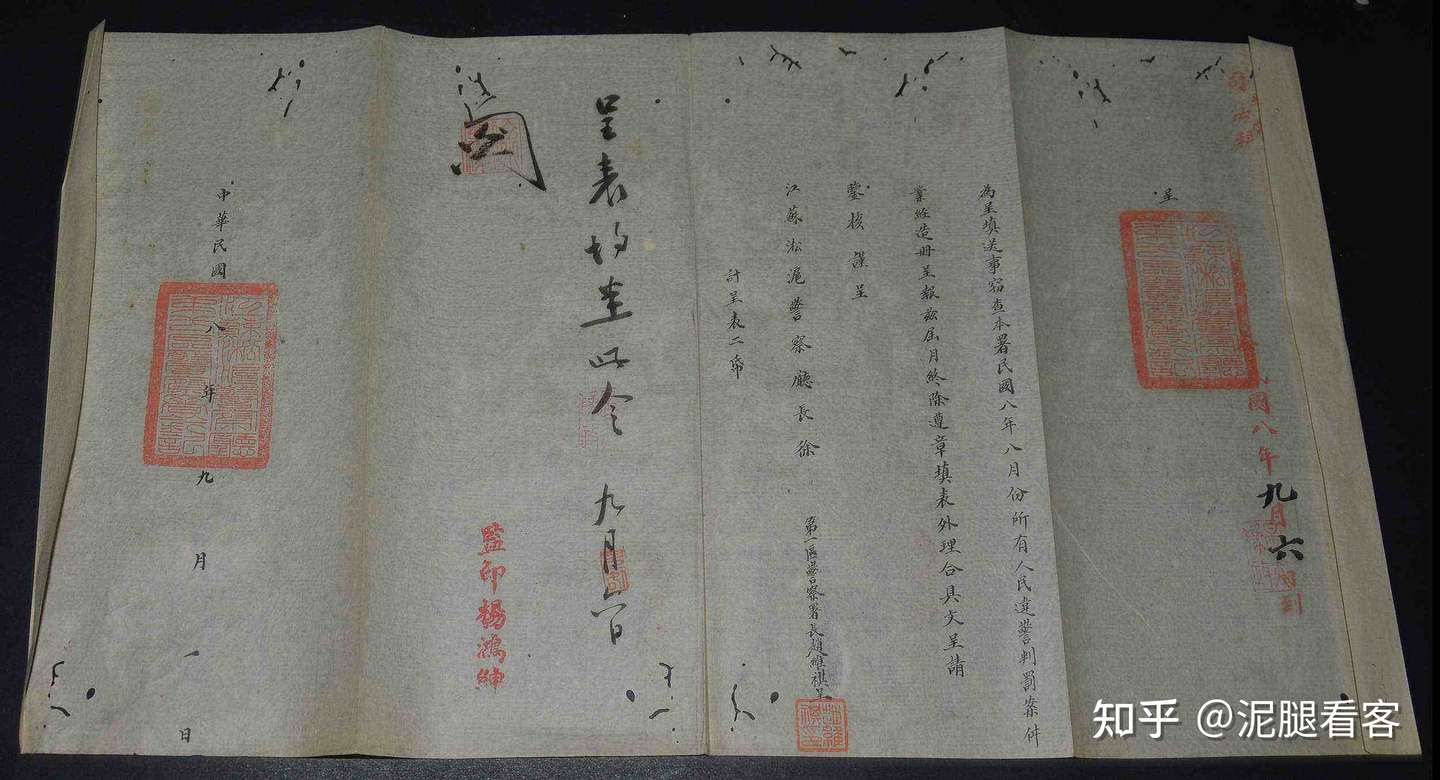 國八年九月六日到
呈
為呈填送事竊查本署民國八年八月份所有人民違警判罰案件
業經造冊呈報茲屆月終除遵章填表外理合具文呈請
鑒核謹呈
江蘇淞滬警察廳長徐
第一區警察署長趙維祺呈
計呈表二帋
呈表均悉此令 九月 日
閱
監印楊鴻紳
中華民國八年九月一日
知乎 @泥腿看客